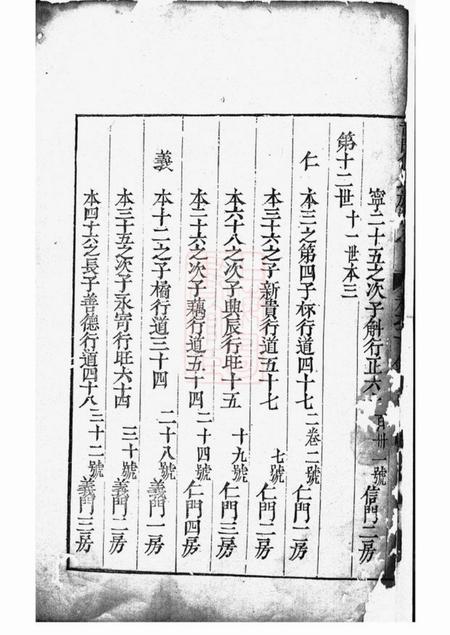 寧二十五之次子斛行正六 百卅一號 信門二房
第十二世 十一世本三
仁 本三之第四子標行道四十七 二卷二號 仁門二房
本三十六之子新貴行道五十七 七號 仁門二房
本六十八之次子典辰行旺十五 十九號 仁門三房
本二十六之次子藕行道五十四 二十四號 仁門四房
義 本十二之子橘行道三十四 二十八號 義門一房
本三十五之次子永寄行旺六十四 三十號 義門二房
本四十六之長子善德行道四十八 三十二號 義門三房